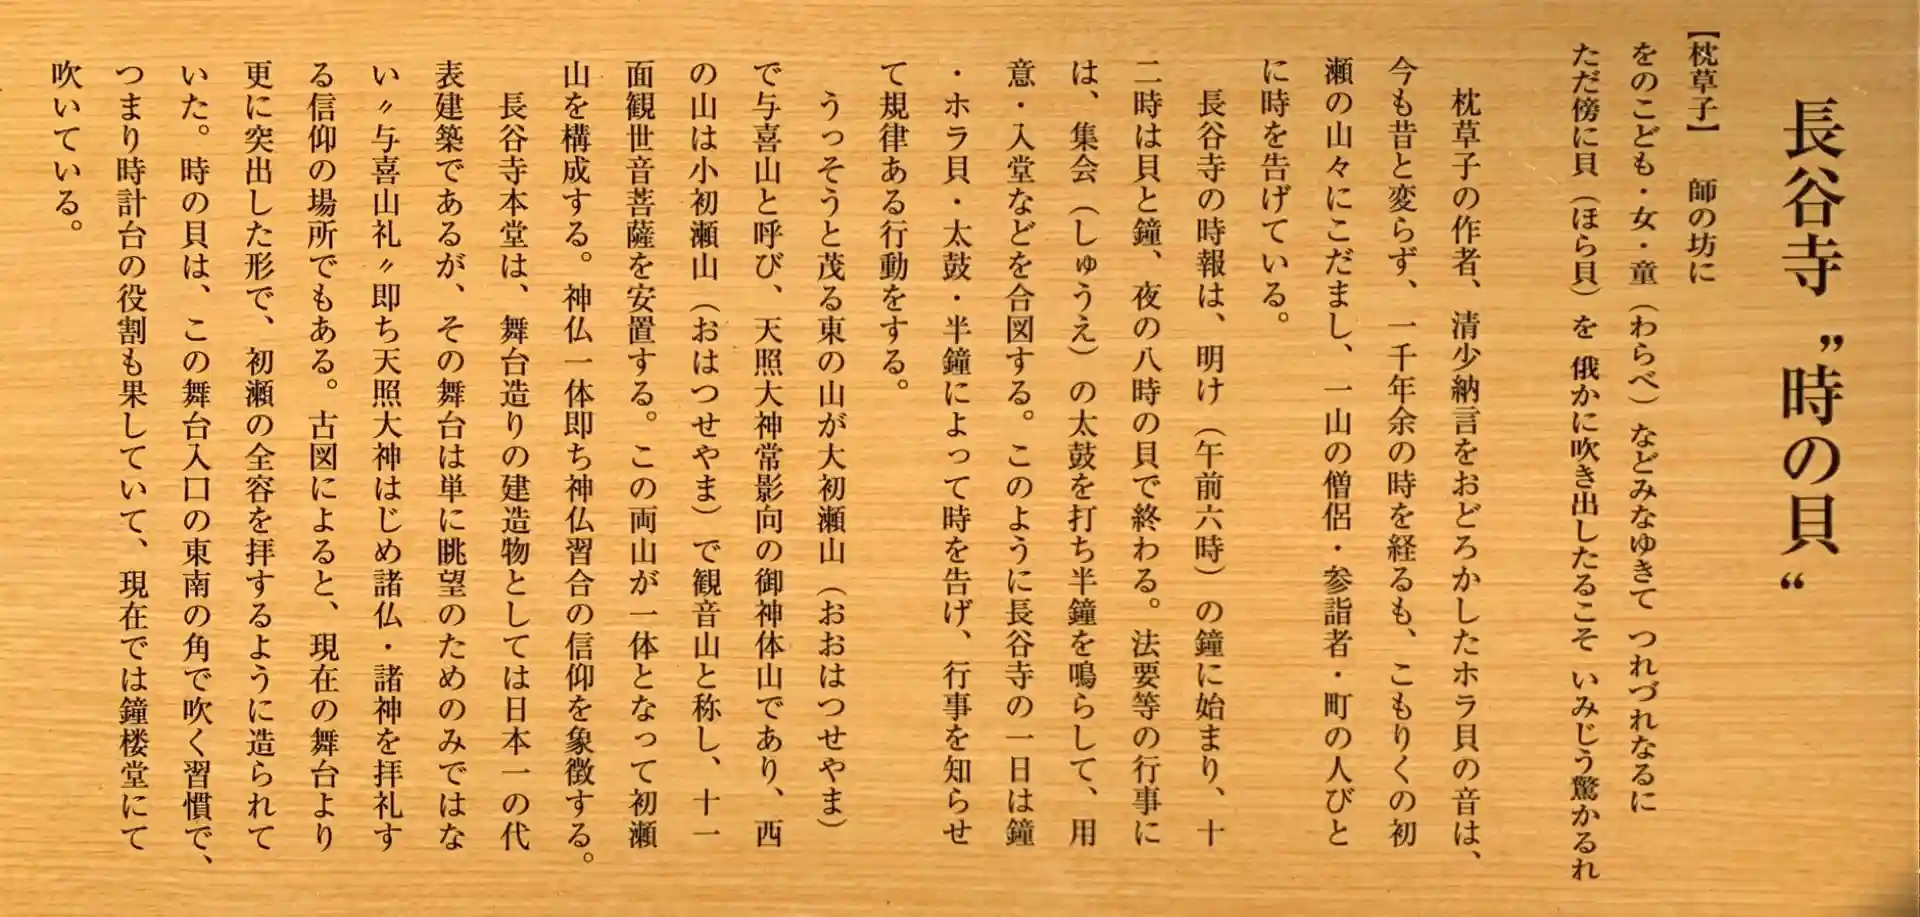 長谷寺〝時の貝〟
【枕草子】 師の坊に
をのこども・女・童（わらべ）などみなゆきて つれづれなるに
ただ傍に貝（ほら貝）を 俄かに吹き出したるこそ いみじう驚かるれ
枕草子の作者、清少納言をおどろかしたホラ貝の音は、
今も昔と変らず、一千年余の時を経るも、こもりくの初
瀬の山々にこだまし、一山の僧侶・参詣者・町の人びと
に時を告げている。
長谷寺の時報は、明け（午前六時）の鐘に始まり、十
二時は貝と鐘、夜の八時の貝で終わる。法要等の行事に
は、集会（しゅうえ）の太鼓を打ち半鐘を鳴らして、用
意・入堂などを合図する。このように長谷寺の一日は鐘
・ホラ貝・太鼓・半鐘によって時を告げ、行事を知らせ
て規律ある行動をする。
うっそうと茂る東の山が大初瀬山（おおはつせやま）
で与喜山と呼び、天照大神常影向の御神体山であり、西
の山は小初瀬山（おはつせやま）で観音山と称し、十一
面観世音菩薩を安置する。この両山が一体となって初瀬
山を構成する。神仏一体即ち神仏習合の信仰を象徴する。
長谷寺本堂は、舞台造りの建造物としては日本一の代
表建築であるが、その舞台は単に眺望のためのみではな
い〃与喜山礼〃即ち天照大神はじめ諸仏・諸神を拝礼す
る信仰の場所でもある。古図によると、現在の舞台より
更に突出した形で、初瀬の全容を拝するように造られて
いた。時の貝は、この舞台入口の東南の角で吹く習慣で、
つまり時計台の役割も果していて、現在では鐘楼堂にて
吹いている。